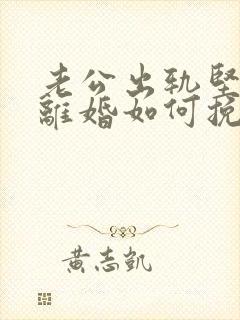 老公出轨坚
離婚如何挽
黄志凱